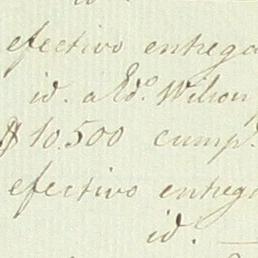 id.
efectivo entrega
id. a Edo. Wilson
$10.500 cump.
efectivo entrega
id.